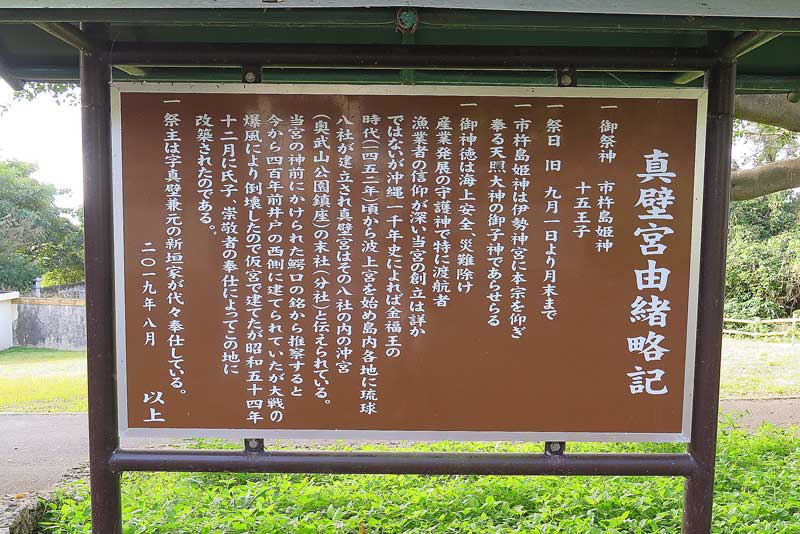 真壁宮由緒略記
一 御祭神 市杵島姫神
十五王子
一 祭日 旧 九月一日より月末まで
一 市杵島姫神は伊勢神宮に本宗を仰ぎ
奉る天照大神の御子神であらせらる
一 御神徳は海上安全、災難除け
産業発展の守護神で特に渡航者
漁業者の信仰が深い当宮の創立は詳か
ではないが沖縄一千年史によれば金福王の
時代(一四五二年)頃から波上宮を始め島内各地に琉球
八社が建立され真壁宮はその八社の内の沖宮
(奥武山公園鎮座)の末社(分社)と伝えられている。
当宮の神前にかけられた鰐口の銘から推察すると
今から四百年前井戸の西側に建てられていたが大戦の
爆風により倒壊したので仮宮で建てたが昭和五十四年
十二月に氏子、崇敬者の奉仕によってこの地に
改築されたのである。
一 祭主は字真壁兼元の新垣家が代々奉仕している。
二〇一九年八月 以上